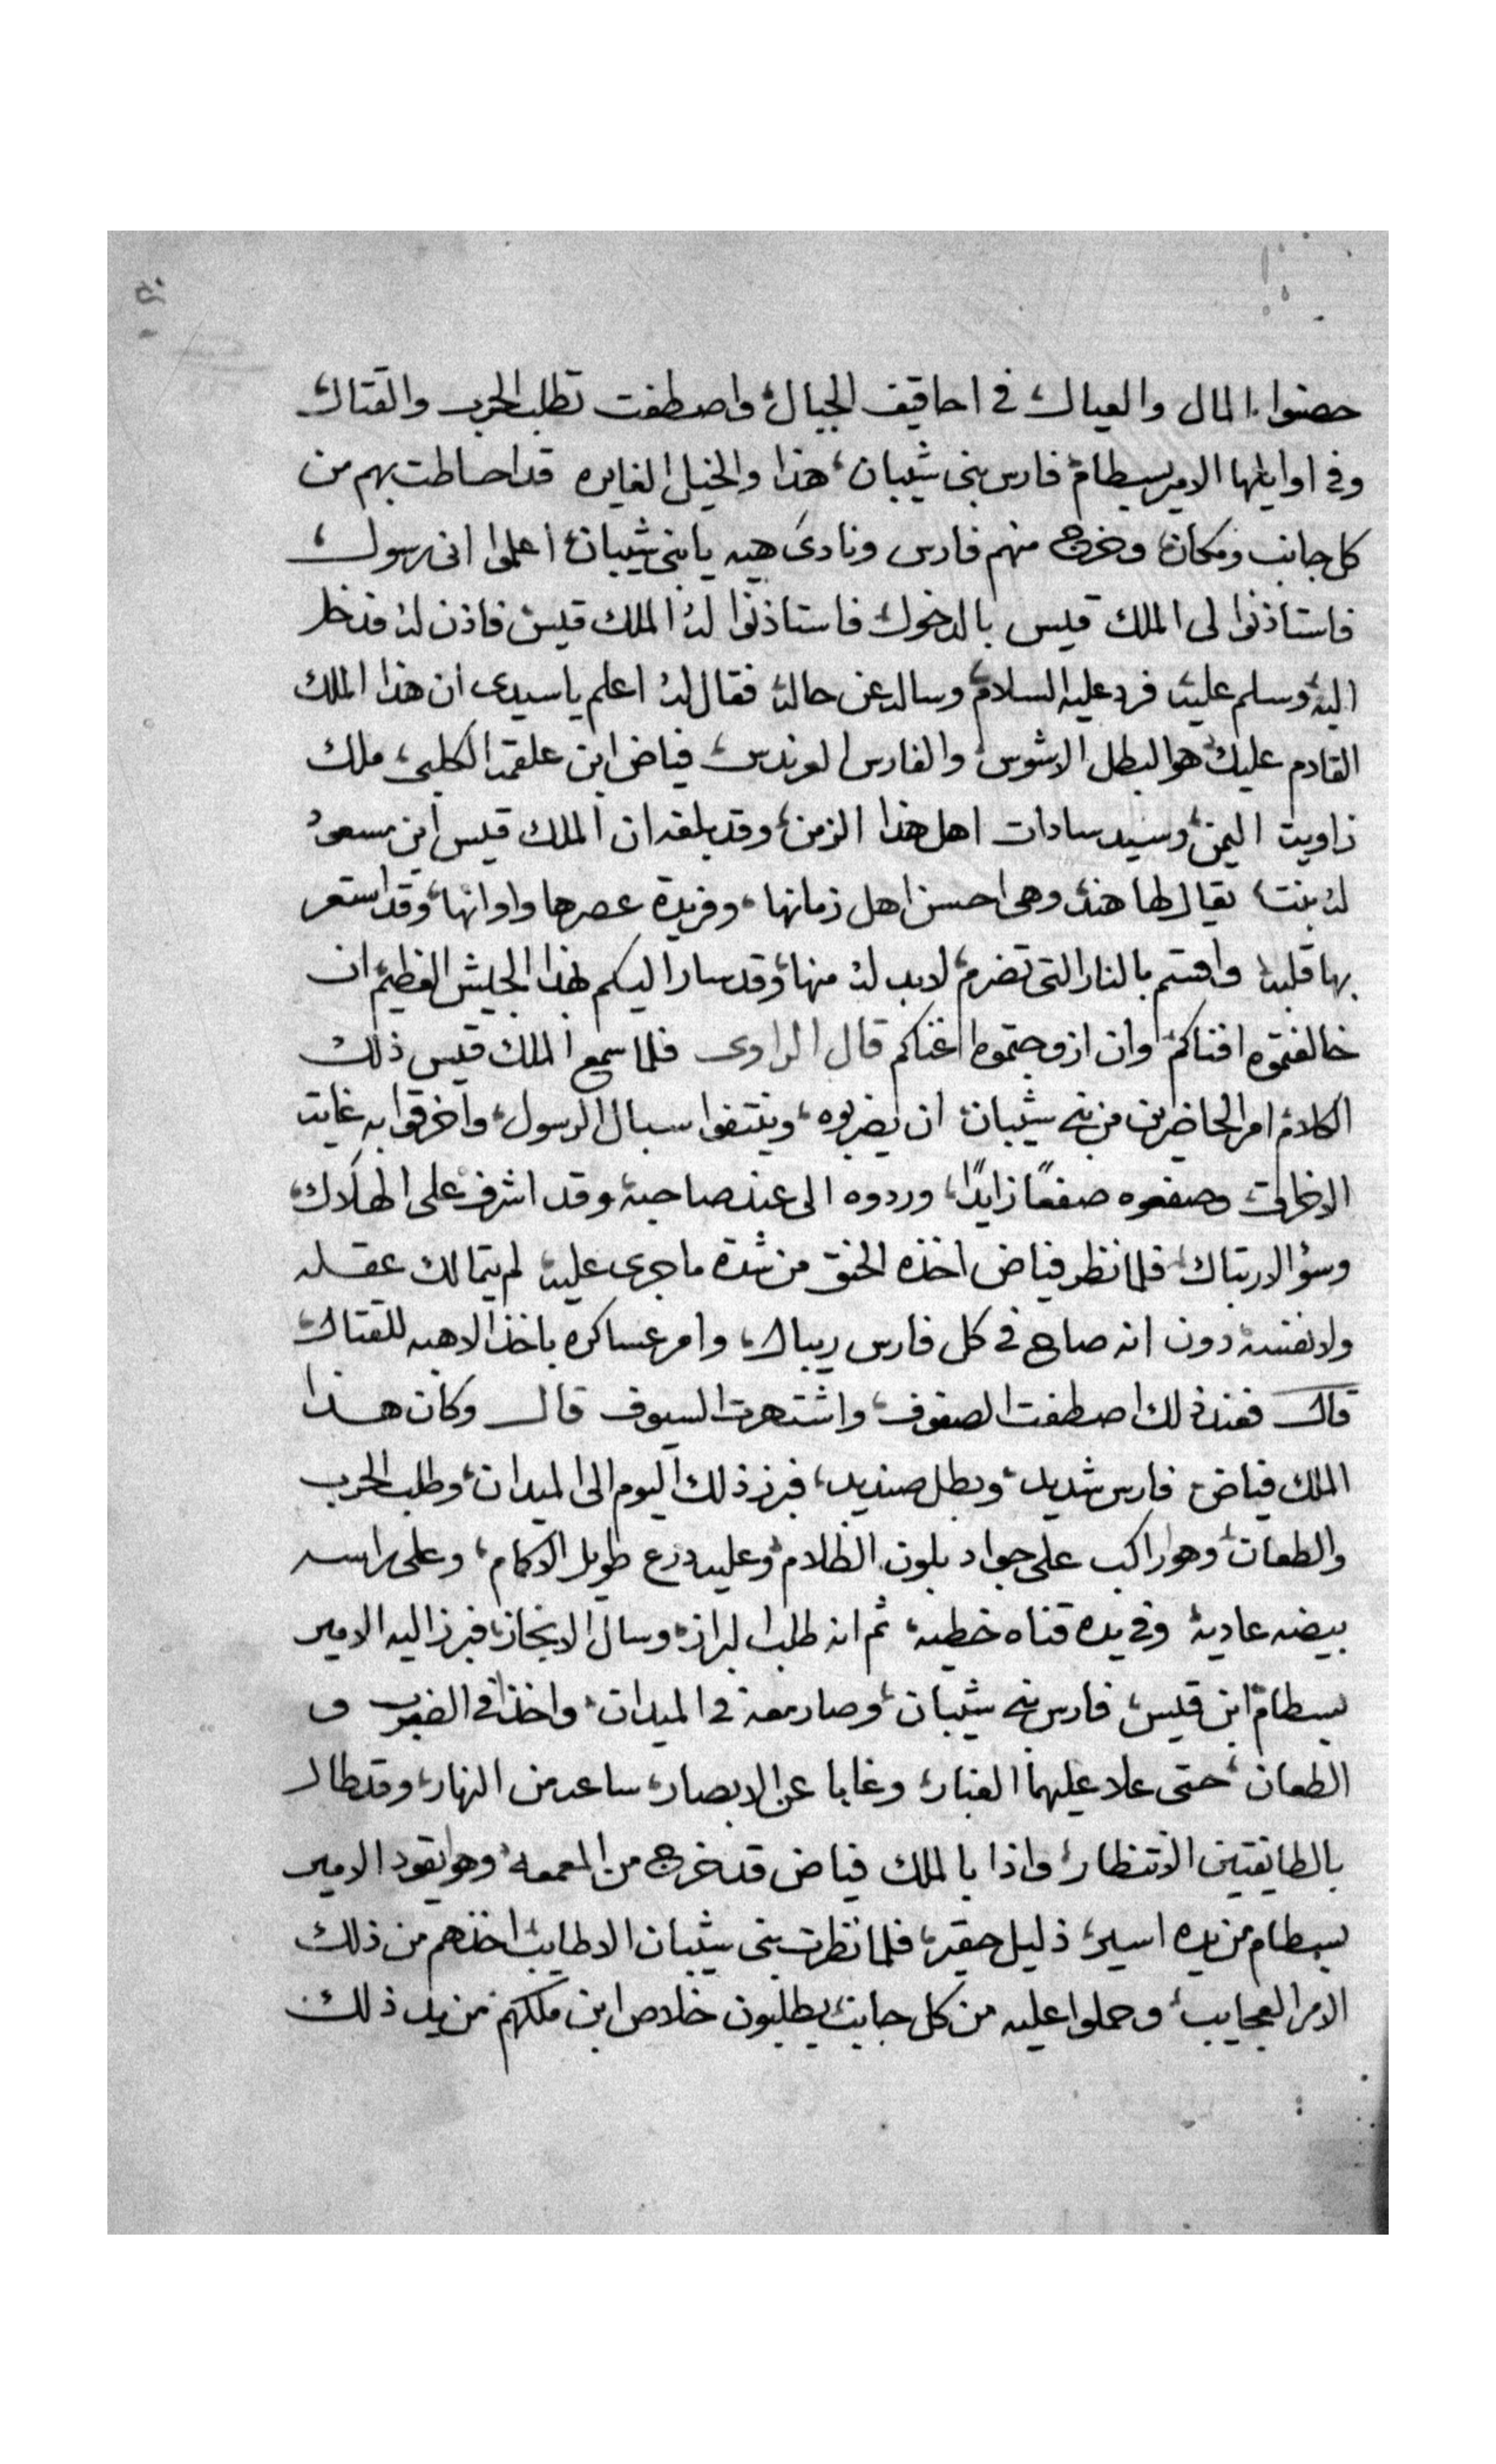 حصنوا المال والعيال في احاقيف الجبال واصطفت تطلب الحرب والقتال
وفي اوايلها الامير بسطام فارس بني شيبان، هذا والخيل الغايره قد احاطت بهم من
كل جانب ومكان، وخرج منهم فارس ونادى هيه يا بني شيبان، اعلموا اني رسول،
فاستاذنوا لي الملك قيس بالدخول، فاستاذنوا له الملك قيس، فاذن له فدخل
اليه، وسلم عليه، فرد عليه السلام، وساله عن حاله، فقال له اعلم يا سيدي ان هذا الملك
القادم عليك، هو البطل الاشوس، والفارس العرندس، فياض ابن علقمه الكلبي، ملك
زاوية اليمن، وسيد سادات اهل هذا الزمن، وقد بلغه ان الملك قيس ابن مسعود
له بنت، يقال لها هند، وهي احسن اهل زمانها، وفريدة عصرها واوانها، وقد استعر
بها قلبه، واقسم بالنار التي تضرم، لا بد له منها، وقد سار اليكم بهذا الجيش العظيم، ان
خالفتموه افناكم، وان ازوجتموه اغناكم قال الراوى فلما سمع الملك قيس ذلك
الكلام، امر الحاضرين من بني شيبان، ان يضربوه، وينتفوا سبال الرسول، واخرقوا به غاية
الاخراق، وصفعوه صفعًا زايدًا، وردوه الى عند صاحبه، وقد اشرف على الهلاك،
وسؤ الارتباك، فلما نظر فياض اخذه الحنق من شدة ما جرى عليه، لم يتمالك عقله
ولا نفسه، دون انه صاح في كل فارس ريبال، وامر عساكره باخذ الاهبه للقتال،
قال فعند ذلك اصطفت الصفوف، واشتهرت السيوف قال وكان هذا
الملك فياض، فارس شديد، وبطل صنديد، فبرز ذلك اليوم الى الميدان، وطلب الحرب
والطعان، وهو راكب على جواد بلون الظلام، وعليه درع طويل الاكمام، وعلى راسه
بيضه عاديه، وفي يده قناه خطيه، ثم انه طلب البراز، وسال الانجاز، فبرز اليه الامير
بسطام ابن قيس، فارس بني شيبان، وصار معه في الميدان، واخذا في الضرب و
الطعان، حتى علا عليهما الغبار، وغابا عن الابصار، ساعه من النهار، وقد طال
بالطايفتين الانتظار، واذا بالملك فياض قد خرج من المعمعه، وهو يقود الامير
بسطام من يده اسير، ذليل حقير، فلما نظرت بني شيبان الاطايب، اخذهم من ذلك
الامر العجايب، وحملوا عليه من كل جانب، يطلبون خلاص ابن ملكهم من يد ذلك